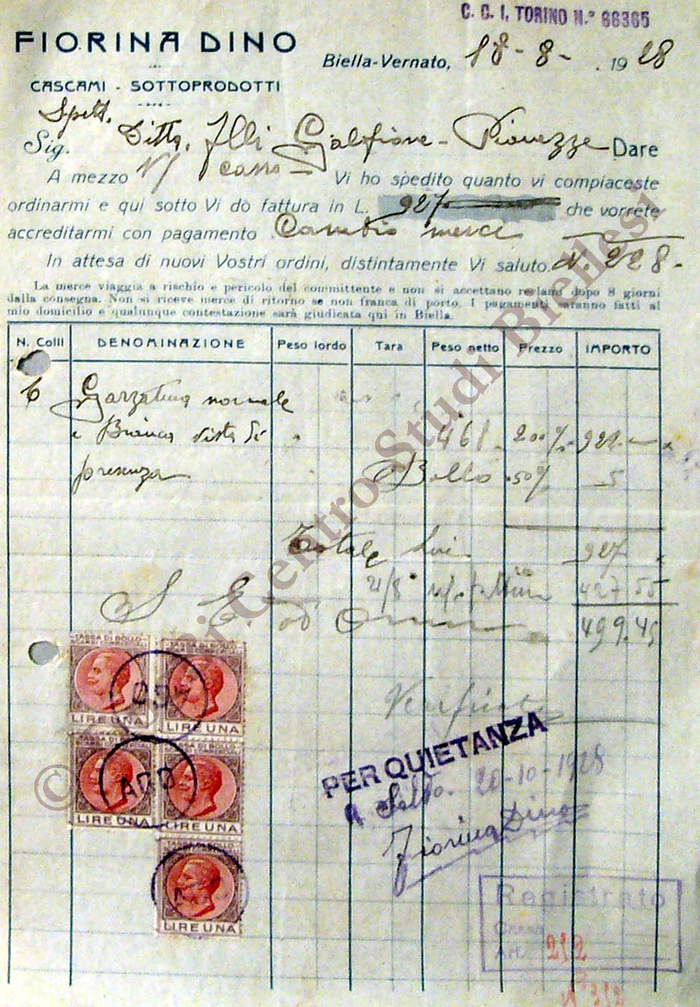 C. C. I. TORINO N.° 66365
FIORINA DINO
Biella-Vernato, 18-8- . 1928
CASCAMI - SOTTOPRODOTTI
Spett.
Sig. Ditta. Flli Galfione - Pianezze Dare
A mezzo carro Vi ho spedito quanto vi compiaceste
ordinarmi e qui sotto Vi dò fattura in L. 927 che vorrete
accreditarmi con pagamento Cambio merci
In attesa di nuovi Vostri ordini, distintamente Vi saluto. N 228-
La merce viaggia a rischio e pericolo del committente e non si accettano reclami dopo 8 giorni
dalla consegna. Non si riceve merce di ritorno se non franca di porto. I pagamenti saranno fatti al
mio domicilio e qualunque contestazione sarà giudicata qui in Biella.
N. Colli DENOMINAZIONE Peso lordo Tara Peso netto Prezzo IMPORTO
6 Garzatura normale
e Bianca vista di 461 200% 922
presenza Bollo 50% 5
Totale Lire 927
427 55
S. E. od O.
499.45
TASSA DI BOLLO
LIRE UNA
LIRE UNA
LIRE UNA
LIRE UNA
LIRE UNA
Verificato
PER QUIETANZA
A Saldo. 20-10-1928
Fiorina Dino
Registrato
Cassa
Art. 212
© Centro Studi Biellesi